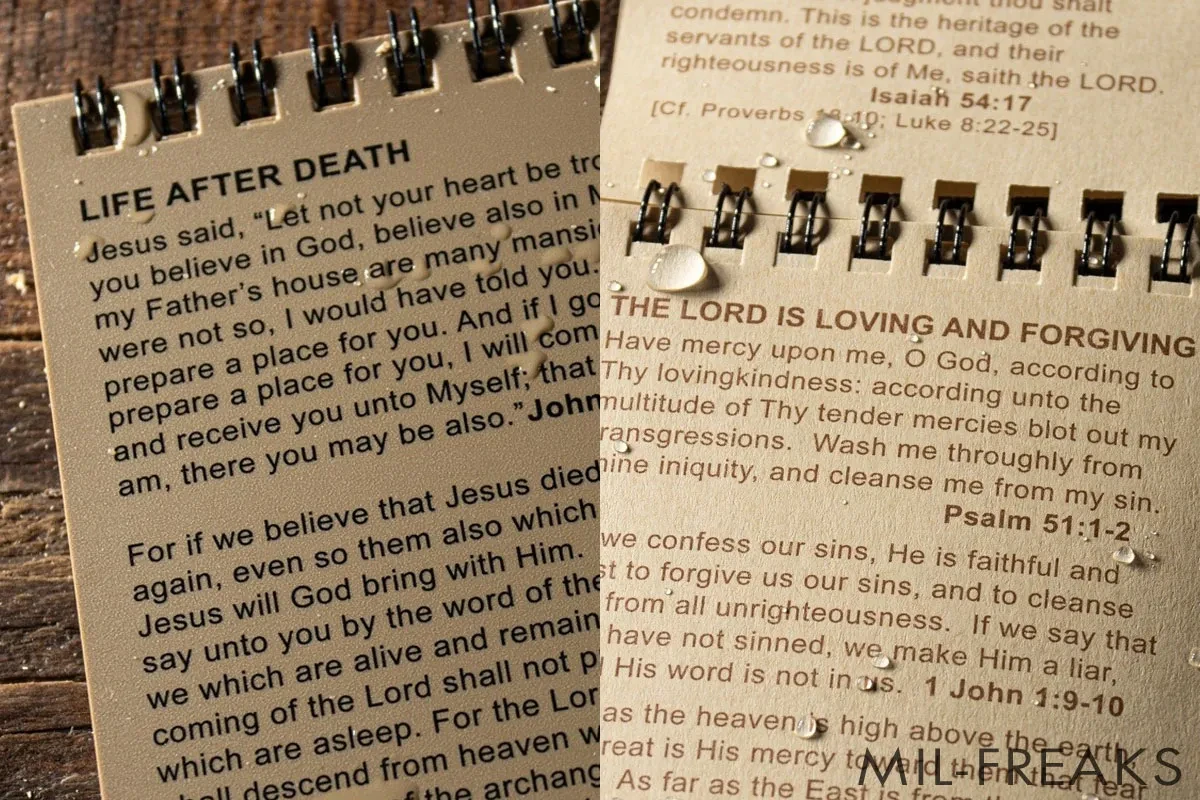 LIFE AFTER DEATH
Jesus said, “Let not your heart be tro
you believe in God, believe also in M
my Father’s house are many mansi
were not so, I would have told you.
prepare a place for you. And if I go
prepare a place for you, I will com
and receive you unto Myself; that
am, there you may be also.” John
For if we believe that Jesus died
again, even so them also which
Jesus will God bring with Him.
say unto you by the word of the
we which are alive and remain
coming of the Lord shall not p
which are asleep. For the Lor
hall descend from heaven w
of the archang
judgment thou shalt
condemn. This is the heritage of the
servants of the LORD, and their
righteousness is of Me, saith the LORD.
Isaiah 54:17
[Cf. Proverbs 18:10; Luke 8:22-25]
THE LORD IS LOVING AND FORGIVING
Have mercy upon me, O God, according to
Thy lovingkindness: according unto the
multitude of Thy tender mercies blot out my
ransgressions. Wash me throughly from
nine iniquity, and cleanse me from my sin.
Psalm 51:1-2
we confess our sins, He is faithful and
st to forgive us our sins, and to cleanse
from all unrighteousness. If we say that
have not sinned, we make Him a liar,
His word is not in us. 1 John 1:9-10
as the heaven is high above the earth
reat is His mercy toward them that fear
As far as the East is from the
MIL-FREAKS